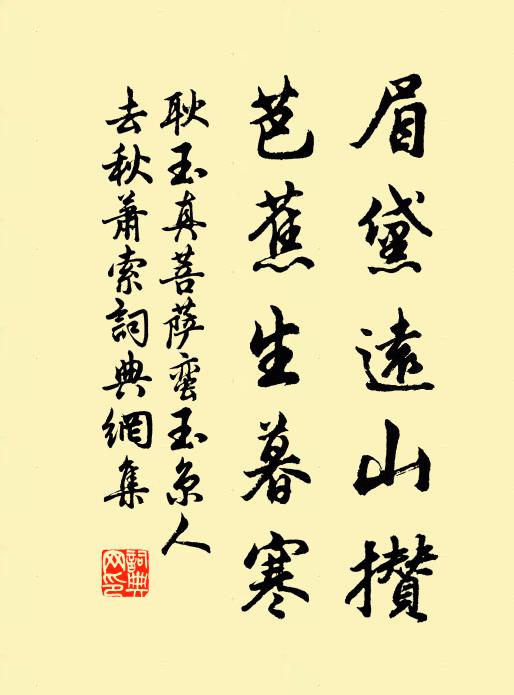 眉黛遠山攅
芭蕉生暮寒
耿玉真菩薩蠻玉京人
去秋蕭索詞典網集
詞典
网印